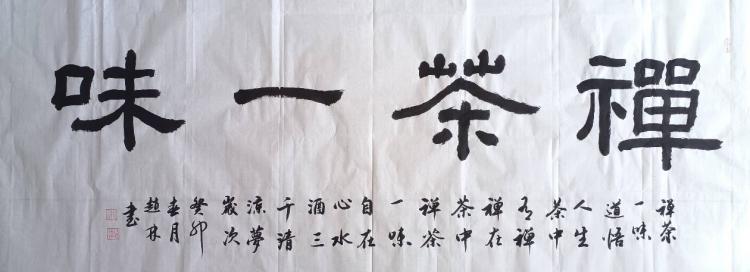 禪茶一味
禅茶
一味
道悟
人生
茶中
有禅
禅在
茶中
禅茶
一味
自在
心水
酒三
千清
凉夢
歲次
癸卯
春月
趙林
書